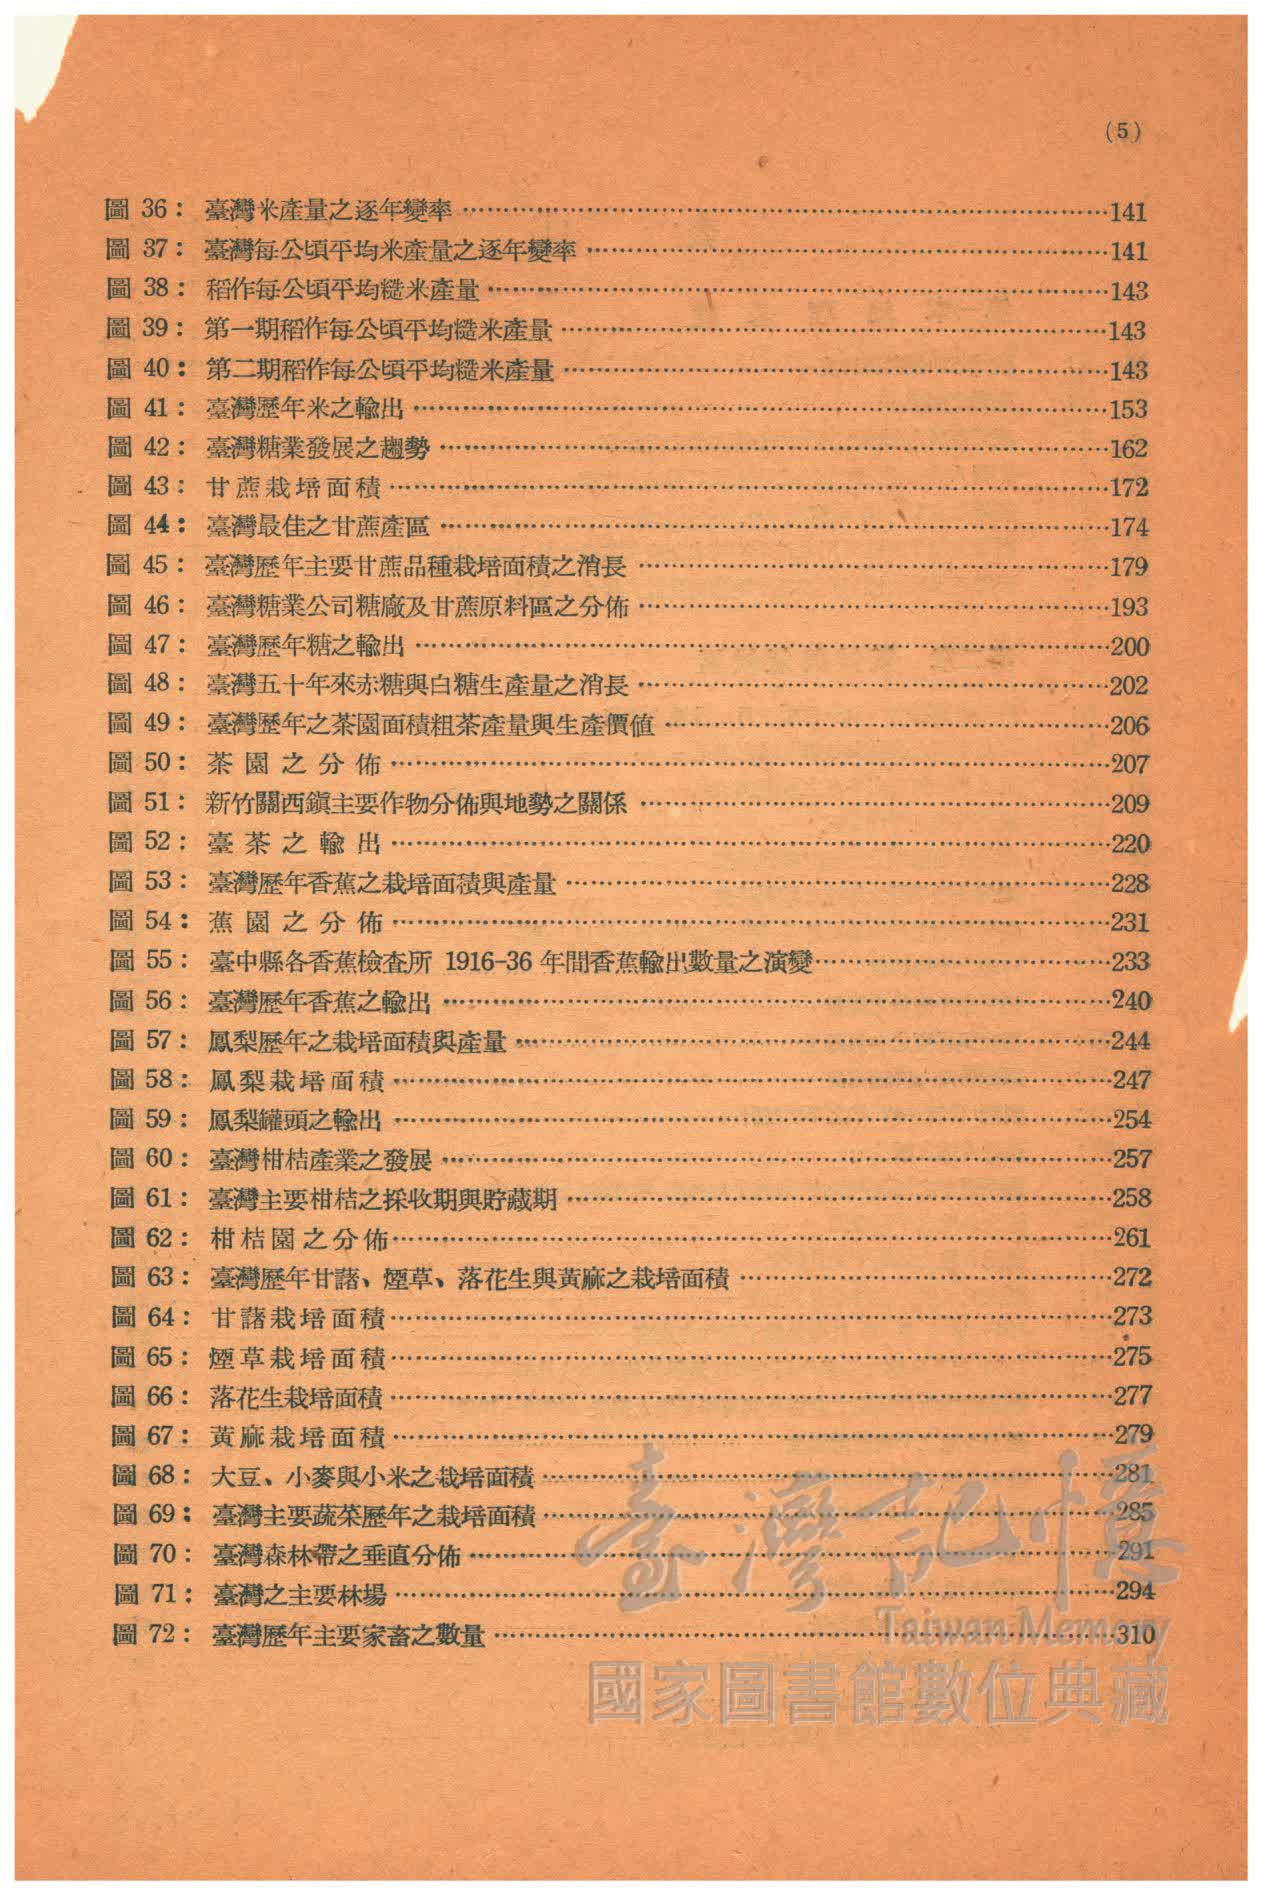 (5)
圖 36： 臺灣米產量之逐年變率……141
圖 37： 臺灣每公頃平均米產量之逐年變率……141
圖 38： 稻作每公頃平均糙米產量……143
圖 39： 第一期稻作每公頃平均糙米產量……143
圖 40： 第二期稻作每公頃平均糙米產量……143
圖 41： 臺灣歷年米之輸出……153
圖 42： 臺灣糖業發展之趨勢……162
圖 43： 甘蔗栽培面積……172
圖 44： 臺灣最佳之甘蔗產區……174
圖 45： 臺灣歷年主要甘蔗品種栽培面積之消長……179
圖 46： 臺灣糖業公司糖廠及甘蔗原料區之分佈……193
圖 47： 臺灣歷年糖之輸出……200
圖 48： 臺灣五十年來赤糖與白糖生產量之消長……202
圖 49： 臺灣歷年之茶園面積粗茶產量與生產價值……206
圖 50： 茶園之分佈……207
圖 51： 新竹關西鎭主要作物分佈與地勢之關係……209
圖 52： 臺茶之輸出……220
圖 53： 臺灣歷年香蕉之栽培面積與產量……228
圖 54： 蕉園之分佈……231
圖 55： 臺中縣各香蕉檢查所 1916-36 年間香蕉輸出數量之演變……233
圖 56： 臺灣歷年香蕉之輸出……240
圖 57： 鳳梨歷年之栽培面積與產量……244
圖 58： 鳳梨栽培面積……247
圖 59： 鳳梨罐頭之輸出……254
圖 60： 臺灣柑桔產業之發展……257
圖 61： 臺灣主要柑桔之採收期與貯藏期……258
圖 62： 柑桔園之分佈……261
圖 63： 臺灣歷年甘藷、煙草、落花生與黃麻之栽培面積……272
圖 64： 甘藷栽培面積……273
圖 65： 煙草栽培面積……275
圖 66： 落花生栽培面積……277
圖 67： 黃麻栽培面積……279
圖 68： 大豆、小麥與小米之栽培面積……281
圖 69： 臺灣主要蔬菜歷年之栽培面積……285
圖 70： 臺灣森林帶之垂直分佈……291
圖 71： 臺灣之主要林場……294
圖 72： 臺灣歷年主要家畜之數量……310
臺灣記憶
Taiwan Memory
國家圖書館數位典藏